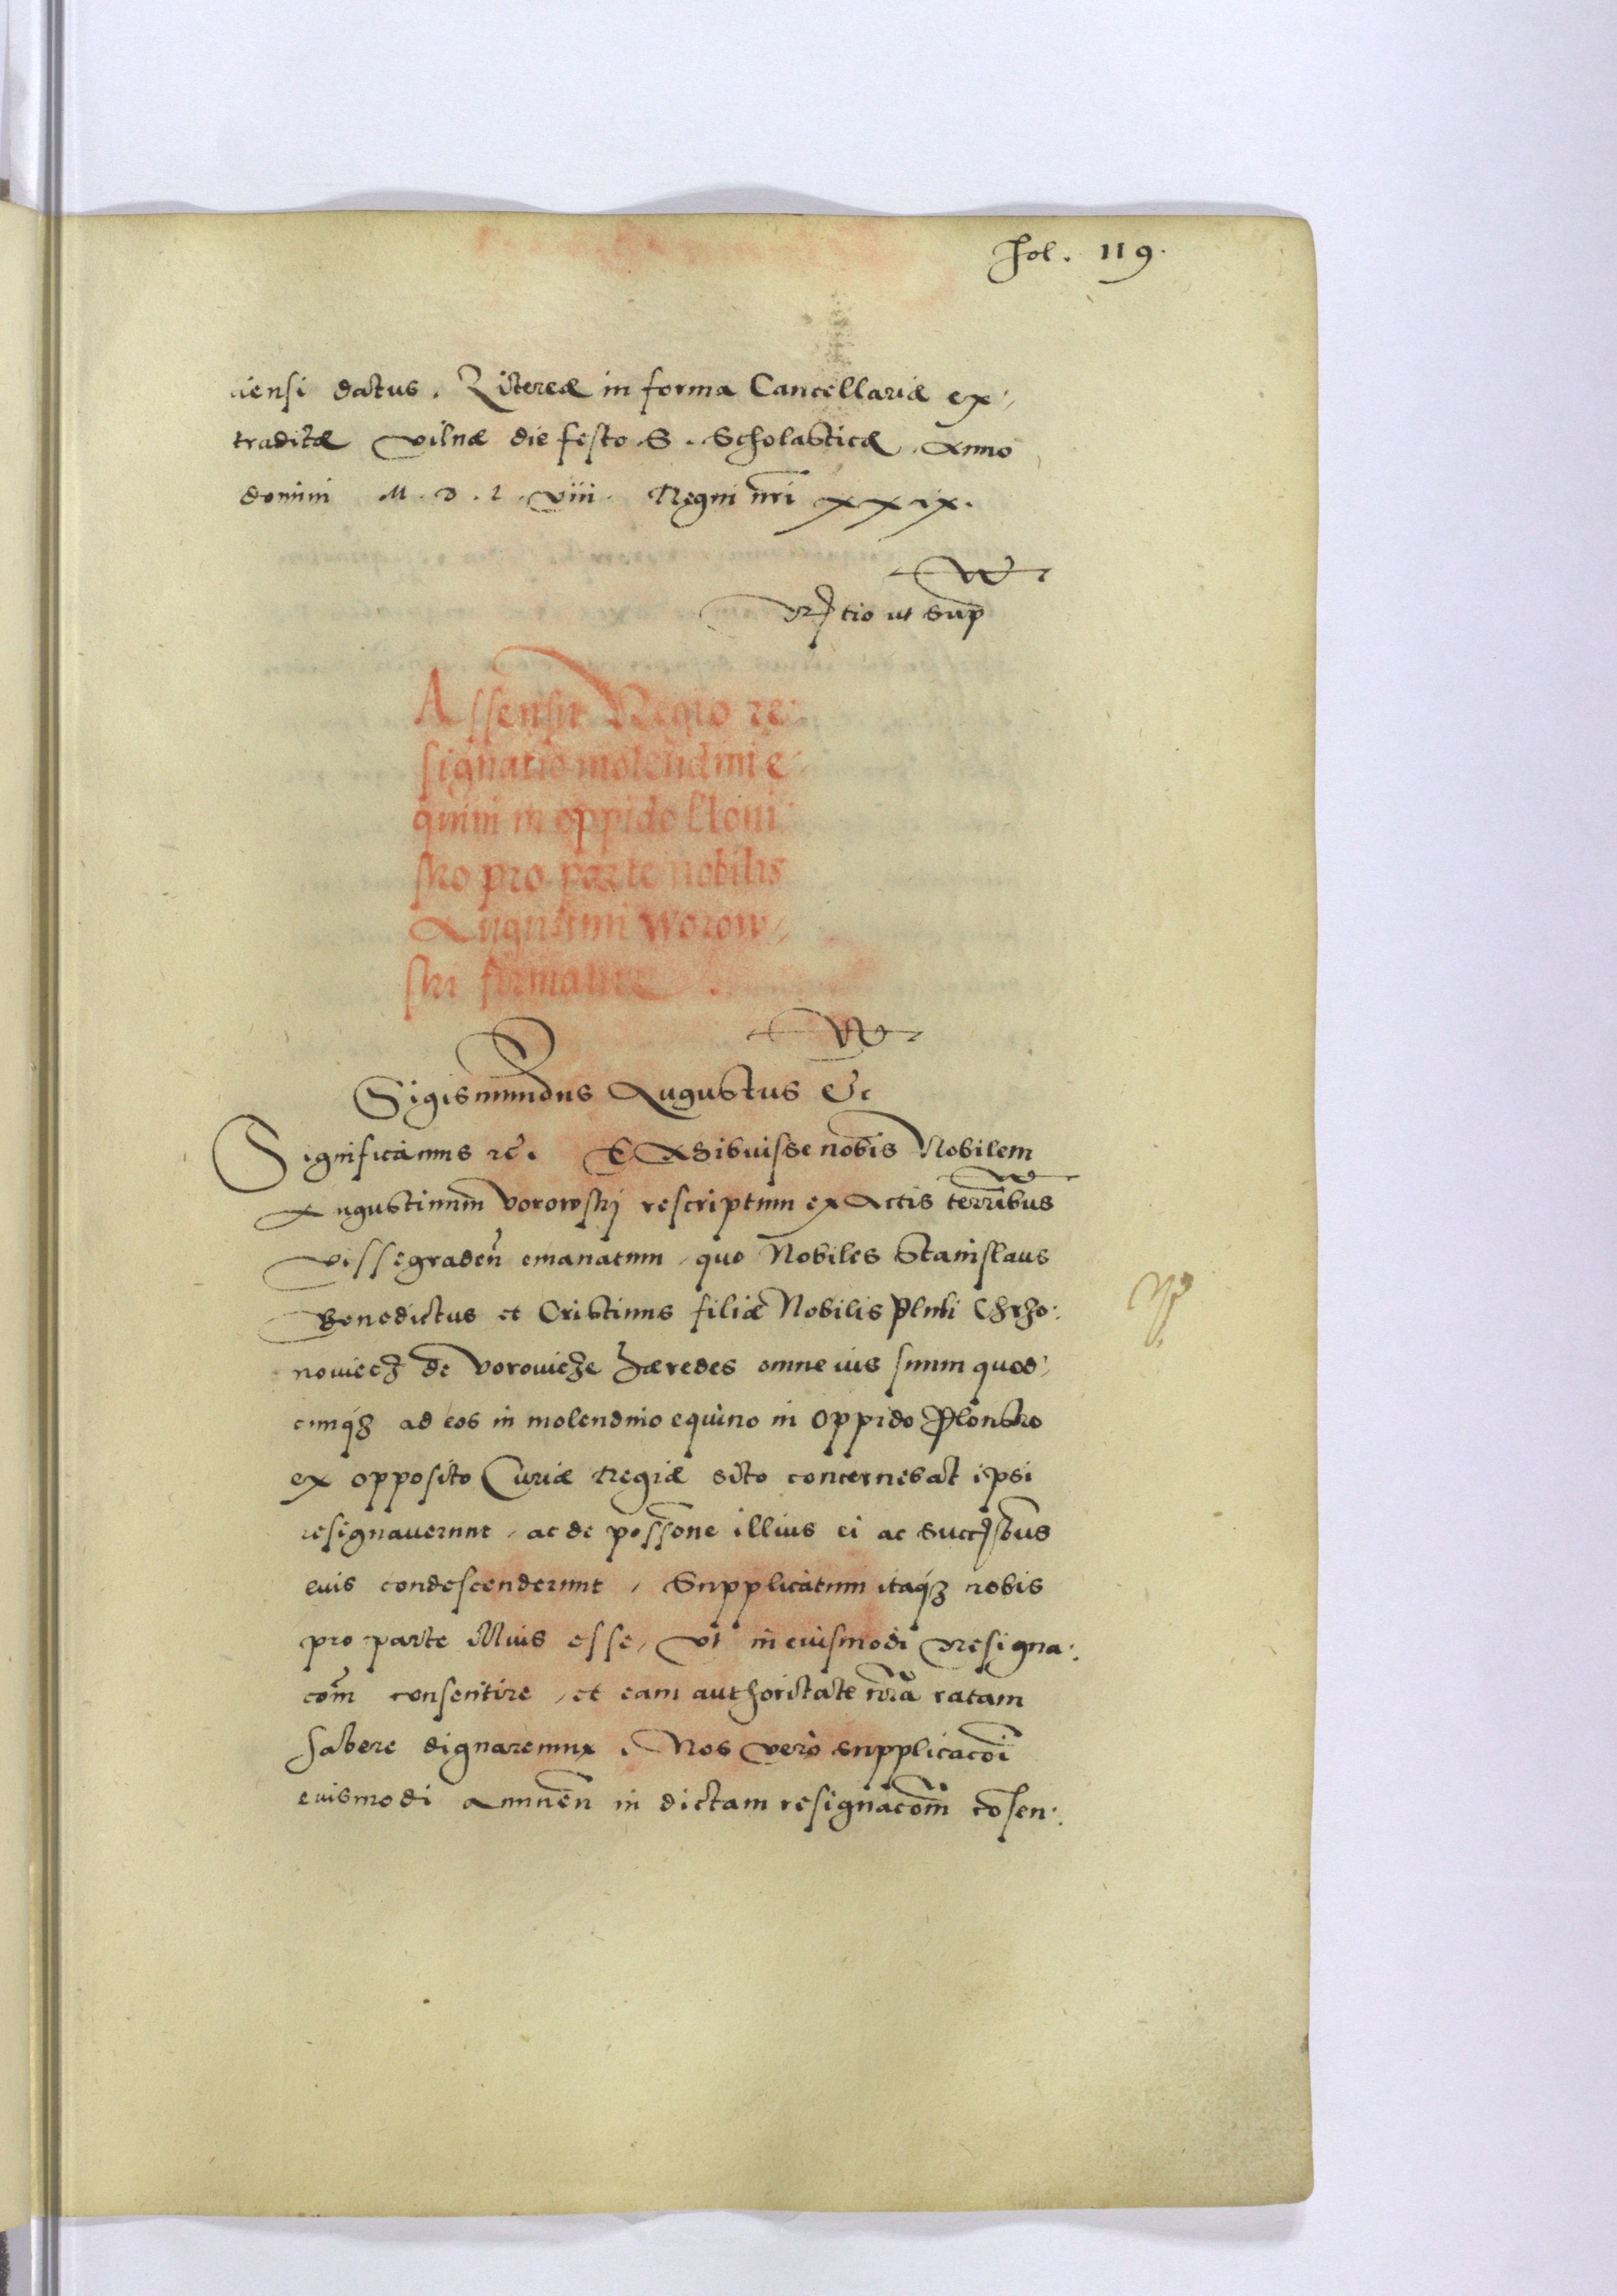 Fol. 119.
ciensi datus. Litereæ in forma Cancellariæ ex,,
traditæ Vilnæ die festo S. Scholasticæ. Anno
domini M.D.L.viii. Regni nri xxix.
ut sup
Assensu Regio re:
signatio molendini e:
quini in oppido Ploni:
sko pro parte nobilis
Augustini Worow,,
ski firmatur.
Sigismundus Augustus &c
Significamus &c. Exhibuisse nobis Nobilem
Augustinum Vorowskj rescriptum ex Actis terribus
Vissegraden emanatum, quo Nobiles Stanislaus
Benedictus et Cristinus filiæ Nobilis
de Vorovicze hæredes omne ius suum quod,,
cumq3 ad eos in molendino equino in Oppido Plonsko
ex opposito Curiæ Regiæ sito concernebat ipsi
resignaverunt, ac de possone illius ei ac
euis condescenderunt, Supplicatum itaq3 nobis
pro parte illius esse, Vt in euismodi resigna:
com consentire, et eam authoritate nra ratam
habere dignaremur. Nos vero supplicacoi
euismodi annuen in dictam resignacom cosen: